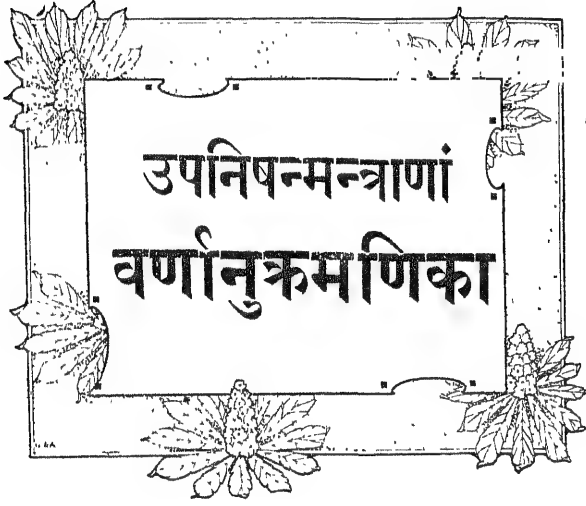 उपनिषन्मन्त्राणां
वर्णानुक्रमणिका